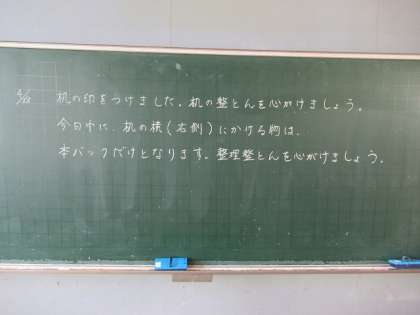 机の印をつけました。机の整とんを心がけましょう。
今日中に、机の横(右側)にかける物は、
本バックだけとなります。整理整とんを心がけましょう。